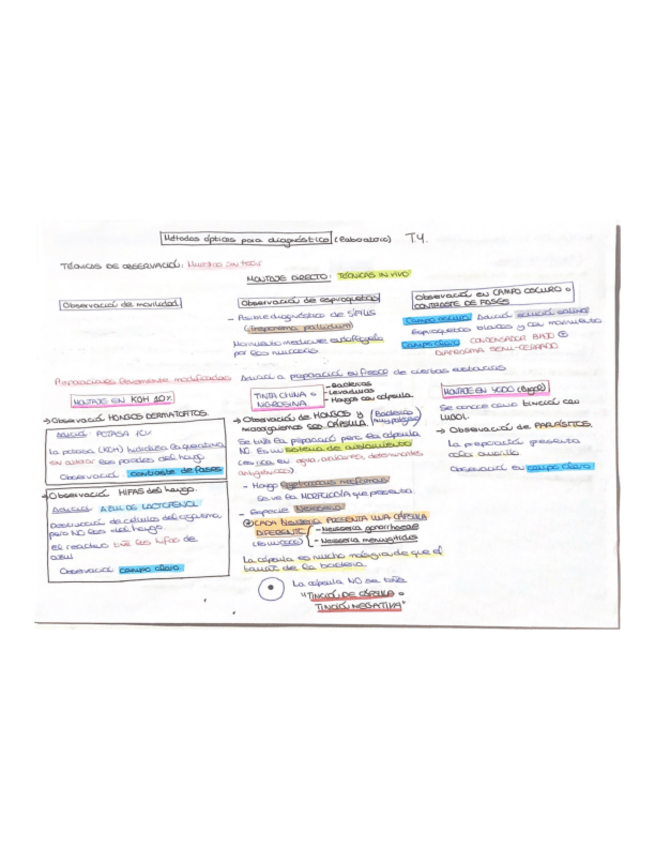 Métodos ópticos para diagnóstico (laboratorio) T.4.
TÉCNICAS DE OBSERVACIÓN: Muestras sin teñir
MONTAJE DIRECTO: TÉCNICAS IN VIVO
Observación de movilidad
Observación de espiroquetas
- Posible diagnóstico de sífilis
(treponema pallidum)
Movimiento mediante
por los
Observación en CAMPO OSCURO o
CONTRASTE DE FASES
Campo oscuro: Adición solución salina
Espiroquetas blancas y con movimiento
Campo claro: CONDENSADOR BAJO ⊕
DIAFRAGMA SEMI-CERRADO
Preparaciones levemente modificadas Adición a preparación en fresco de ciertas sustancias
MONTAJE EN KOH 10%
→ Observación HONGOS DERMATOFITOS.
Adición: POTASA 10%
La potasa (KOH) hidroliza la queratina
sin alterar las paredes del hongo
Observación: contraste de fases
→ Observación HIFAS del hongo.
Adición: AZUL DE LACTOFENOL
Destrucción de células del organismo
pero NO las del hongo
El reactivo tiñe las hifas de
azul
Observación: campo claro
TINTA CHINA o
NIGROSINA
- Bacterias
- Levaduras
- Hongos con cápsula
→ Observación de HONGOS y
microorganismos con CÁPSULA
Se tiñe la preparación pero la cápsula
NO. Es un sistema de aislamiento
(es rica en agua, azúcares, determinantes
antigénicos)
- Hongo Cryptococcus neoformans
Se ve la MORFOLOGÍA que presenta.
- Especie Neisseria
⊕ CADA Neisseria PRESENTA UNA CÁPSULA
DIFERENTE
- Neisseria gonorrhoeae
- Neisseria meningitidis
La cápsula es mucho más grande que el
tamaño de la bacteria
La cápsula NO se tiñe
"TINCIÓN DE CÁPSULA o
TINCIÓN NEGATIVA"
MONTAJE EN YODO (lugol)
Se conoce como tinción con
LUGOL.
→ Observación de PARÁSITOS.
La preparación presenta
color amarillo.
Observación en campo claro